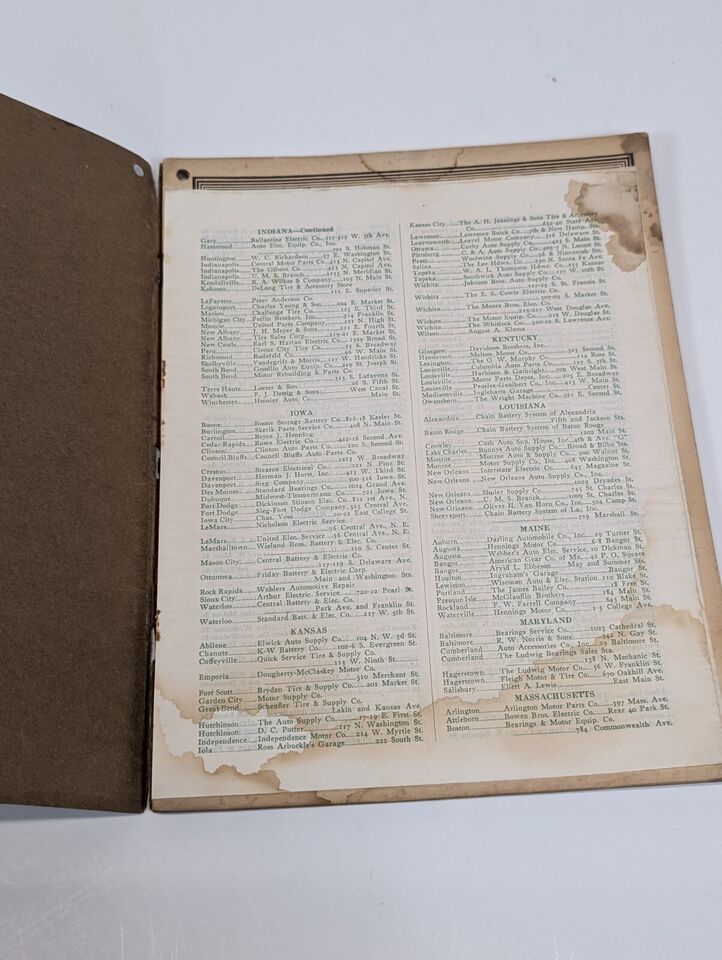 INDIANA—Continued
Gary Ballantine Electric Co., 517-519 W. 5th Ave.
Hammond Auto Elec. Equip. Co., Inc.
701 S. Hohman St.
Huntington W. C. Richardson 37 E. Washington St.
Indianapolis Central Motor Parts Co. 413 N. Capitol Ave.
Indianapolis The Gibson Co. 433 N. Capitol Ave.
Indianapolis U. M. S. Branch N. Meridian St.
Kendallville R. A. Wilkes & Company 105 N. Main St.
Kokomo DeLong Tire & Accessory Store
111 E. Superior St.
LaFayette Peter Anderson Co.
Logansport Charles Young & Son 204 E. Market St.
Marion Challenge Tire Co. 123 E. Third St.
Michigan City Perlin Brothers, Inc. 814 Franklin St.
Muncie United Parts Company 121 N. High St.
New Albany J. H. Meyer & Sons 211 E. Fourth St.
New Albany Tire Sales Corp. E. Market St.
New Castle Earl S. Harlan Electric Co. 1529 Broad St.
Peru Circus City Tire Co. 55 S. Broadway
Richmond Rodefeld Co. 96 W. Main St.
Shelbyville Vandagrift & Morris 117 W. Hendricks St.
South Bend Goodlin Auto Equip. Co. 229 St. Joseph St.
South Bend Motor Rebuilding & Parts Co.
513 S. Lafayette St.
Terre Haute Loeser & Son 26 S. Fifth St.
Wabash F. J. Dettig & Sons West Canal St.
Winchester Hoosier Auto Co. Main St.
IOWA
Boone Boone Storage Battery Co. 816-18 Keeler St.
Burlington Skerik Parts Service Co. 408 N. Main St.
Carroll Bryce J. Henning
Cedar Rapids Rowe Electric Co. 422-16 Second Ave.
Clinton Clinton Auto Parts Co. 220 S. Second St.
Council Bluffs Council Bluffs Auto Parts Co.
1213 W. Broadway
Creston Stearns Electrical 121 N. Pine St.
Davenport Herman J. Horst, Inc. 413 W. Third St.
Davenport Sieg Company 500-526 Iowa St.
Des Moines Standard Bearings Co. 1014 Grand Ave.
Dubuque Midwest-Timmermann Co. 721 Iowa St.
Fort Dodge Dickinson Stinson Elec. Co. 812 1st Ave., N.
Fort Dodge Sieg-Fort Dodge Company 525 Central Ave.
Iowa City Chas. Voss 20-22 East College St.
LeMars Nicholson Electric Service
36 Central Ave., N. E.
LeMars United Elec. Service 36 Central Ave., N. E.
Marshalltown Wieland Bros. Battery & Elec. Co.
110 S. Center St.
Mason City Central Battery & Electric Co.
117-119 S. Delaware Ave.
Ottumwa Friday Battery & Electric Corp.
Main and Washington Sts.
Rock Rapids Wohlers Automotive Repair
Sioux City Arthur Electric Service 720-22 Pearl St.
Waterloo Central Battery & Elec. Co.
Park Ave. and Franklin St.
Waterloo Standard Batt. & Elec. Co. 217 W. 5th St.
KANSAS
Abilene Elwick Auto Supply Co. 104 N. W. 3d St.
Chanute K-W Battery Co. 102-6 S. Evergreen St.
Coffeyville Quick Service Tire & Supply Co.
113 W. Ninth St.
Emporia Dougherty-McClaskey Motor Co.
510 Merchant St.
Fort Scott Bryden Tire & Supply Co. 201 Market St.
Garden City Motor Supply Co.
Great Bend Scheufler Tire & Supply Co.
Lakin and Kansas Ave.
Hutchinson The Auto Supply Co. 17-19 E. First St.
Hutchinson D. C. Potter 127 N. Washington St.
Independence Independence Motor Co. 214 W. Myrtle St.
Iola Ross Arbuckle's Garage 222 South St.
Kansas City The A. H. Jennings & Sons Tire & Accessory
Co. 632-40 State Ave.
Lawrence Lawrence Buick Co. 7th & New Hamp. Sts.
Leavenworth Leavel Motor Company 516 Delaware St.
Ottawa Corby Auto Supply Co. 425 S. Main St.
Pittsburg C. & A. Auto Supply Co. 205-7 N. Locust St.
Pratt Woodwine Supply Co. 3d & Ninnescah Sts.
Salina The Lee Hdwe. Co. N. Santa Fe Ave.
Topeka W. A. L. Thompson Hdwe. Co. Kansas
Topeka Southwick Auto Supply Co. 117 W. 10th St.
Wichita Johnson Bros. Auto Supply Co.
S. St. Francis St.
Wichita The E. S. Cowie Electric Co.
507-09 S. Market St.
Wichita The Moore Bros. Elec. Co.
215-217 West Douglas Ave.
Wichita The Motor Equip. Co. 212 W. Douglas St.
Wichita The Whitlock Co. 320-22 S. Lawrence Ave.
Wilson August A. Kiema
KENTUCKY
Glasgow Davidson Brothers, Inc.
Henderson Melton Motor Co. 523 Second St.
Lexington The O. W. Murphy Co. 214 Rose St.
Louisville Columbia Auto Parts Co. 127 S. 7th St.
Louisville Harbison & Gathright 709 West Main St.
Louisville Motor Parts Depot, Inc. 205 E. Broadway
Louisville Peaslee-Gaulbert Co., Inc. 415 W. Main St.
Madisonville Inglehart Garage Center St.
Owensboro The Wright Machine Co. 321 E. Second St.
LOUISIANA
Alexandria Chain Battery System of Alexandria
Fifth and Jackson Sts.
Baton Rouge Chain Battery System of Baton Rouge
1202 Main St.
Crowley Cash Auto Sup. House, Inc. 4th & Ave. "G"
Lake Charles Bunnys Auto Supply Co. Broad & Bilbo Sts.
Monroe Monroe Auto & Supply Co. 300 Walnut St.
Monroe Motor Supply Co., Inc. 408 Washington St.
New Orleans Interstate Electric Co. 643 Magazine St.
New Orleans New Orleans Auto Supply Co., Inc.
1029 Dryades St.
New Orleans Shuler Supply Co. St. Charles St.
New Orleans U. M. S. Branch 1009 St. Charles St.
New Orleans Oliver H. Van Horn Co., Inc. 524 Camp St.
Shreveport Chain Battery System of La., Inc.
719 Marshall St.
MAINE
Auburn Darling Automobile Co., Inc. 29 Turner St.
Augusta Hennings Motor Co. 6-8 Bangor St.
Augusta Webber's Auto Elec. Service, 10 Dickman St.
Bangor American Gear Co. of Me. 42 P. O. Square
Bangor Arvid L. Ebbeson May and Summer Sts.
Houlton Ingraham's Garage Bangor St.
Lewiston Wiseman Auto & Elec. Station 110 Blake St.
Portland The James Bailey Co. 18 Free St.
Presque Isle McGlauflin Brothers 184 Main St.
Rockland F. W. Farrell Company 643 Main St.
Waterville Hennings Motor Co. 1-5 College Ave.
MARYLAND
Baltimore Bearings Service Co. 1023 Cathedral St.
Baltimore R. W. Norris & Sons 542 N. Gay St.
Cumberland Auto Accessories Co., Inc. 29 Baltimore St.
Cumberland The Ludwig Bearings Sales Sta.
138 N. Mechanic St.
Hagerstown The Ludwig Motor Co. 56 W. Franklin St.
Hagerstown Fleigh Motor & Tire Co. 670 Oakhill Ave.
Salisbury Eliett A. Lewis East Main St.
MASSACHUSETTS
Arlington Arlington Motor Parts Co. 397 Mass. Ave.
Attleboro Bowen Bros. Electric Co. Rear 40 Park St.
Boston Bearings & Motor Equip. Co.
784 Commonwealth Ave.